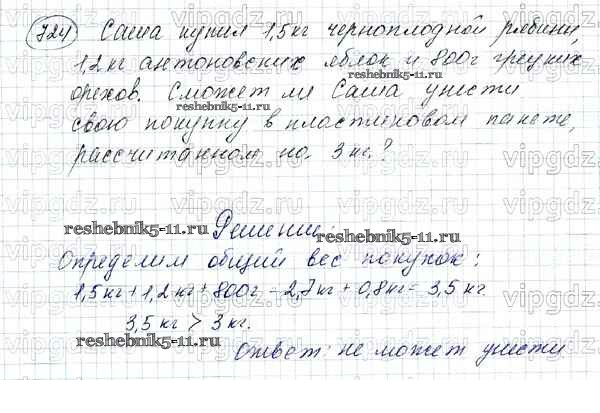 724 Саша купил 1,5кг черноплодной рябины,
1,2 кг антоновских яблок и 800г грецких
орехов. Сможет ли Саша унести
reshebnik5-11.ru
свою покупку в пластиковом пакете,
рассчитанном на 3 кг.?
reshebnik5-11.ru
Решение:
Определим общий вес покупок:
1,5кг + 1,2кг + 800г = 2,7кг + 0,8кг = 3,5кг
3,5 кг > 3 кг.
reshebnik5-11.ru
Ответ: не может унести
vipgdz.ru